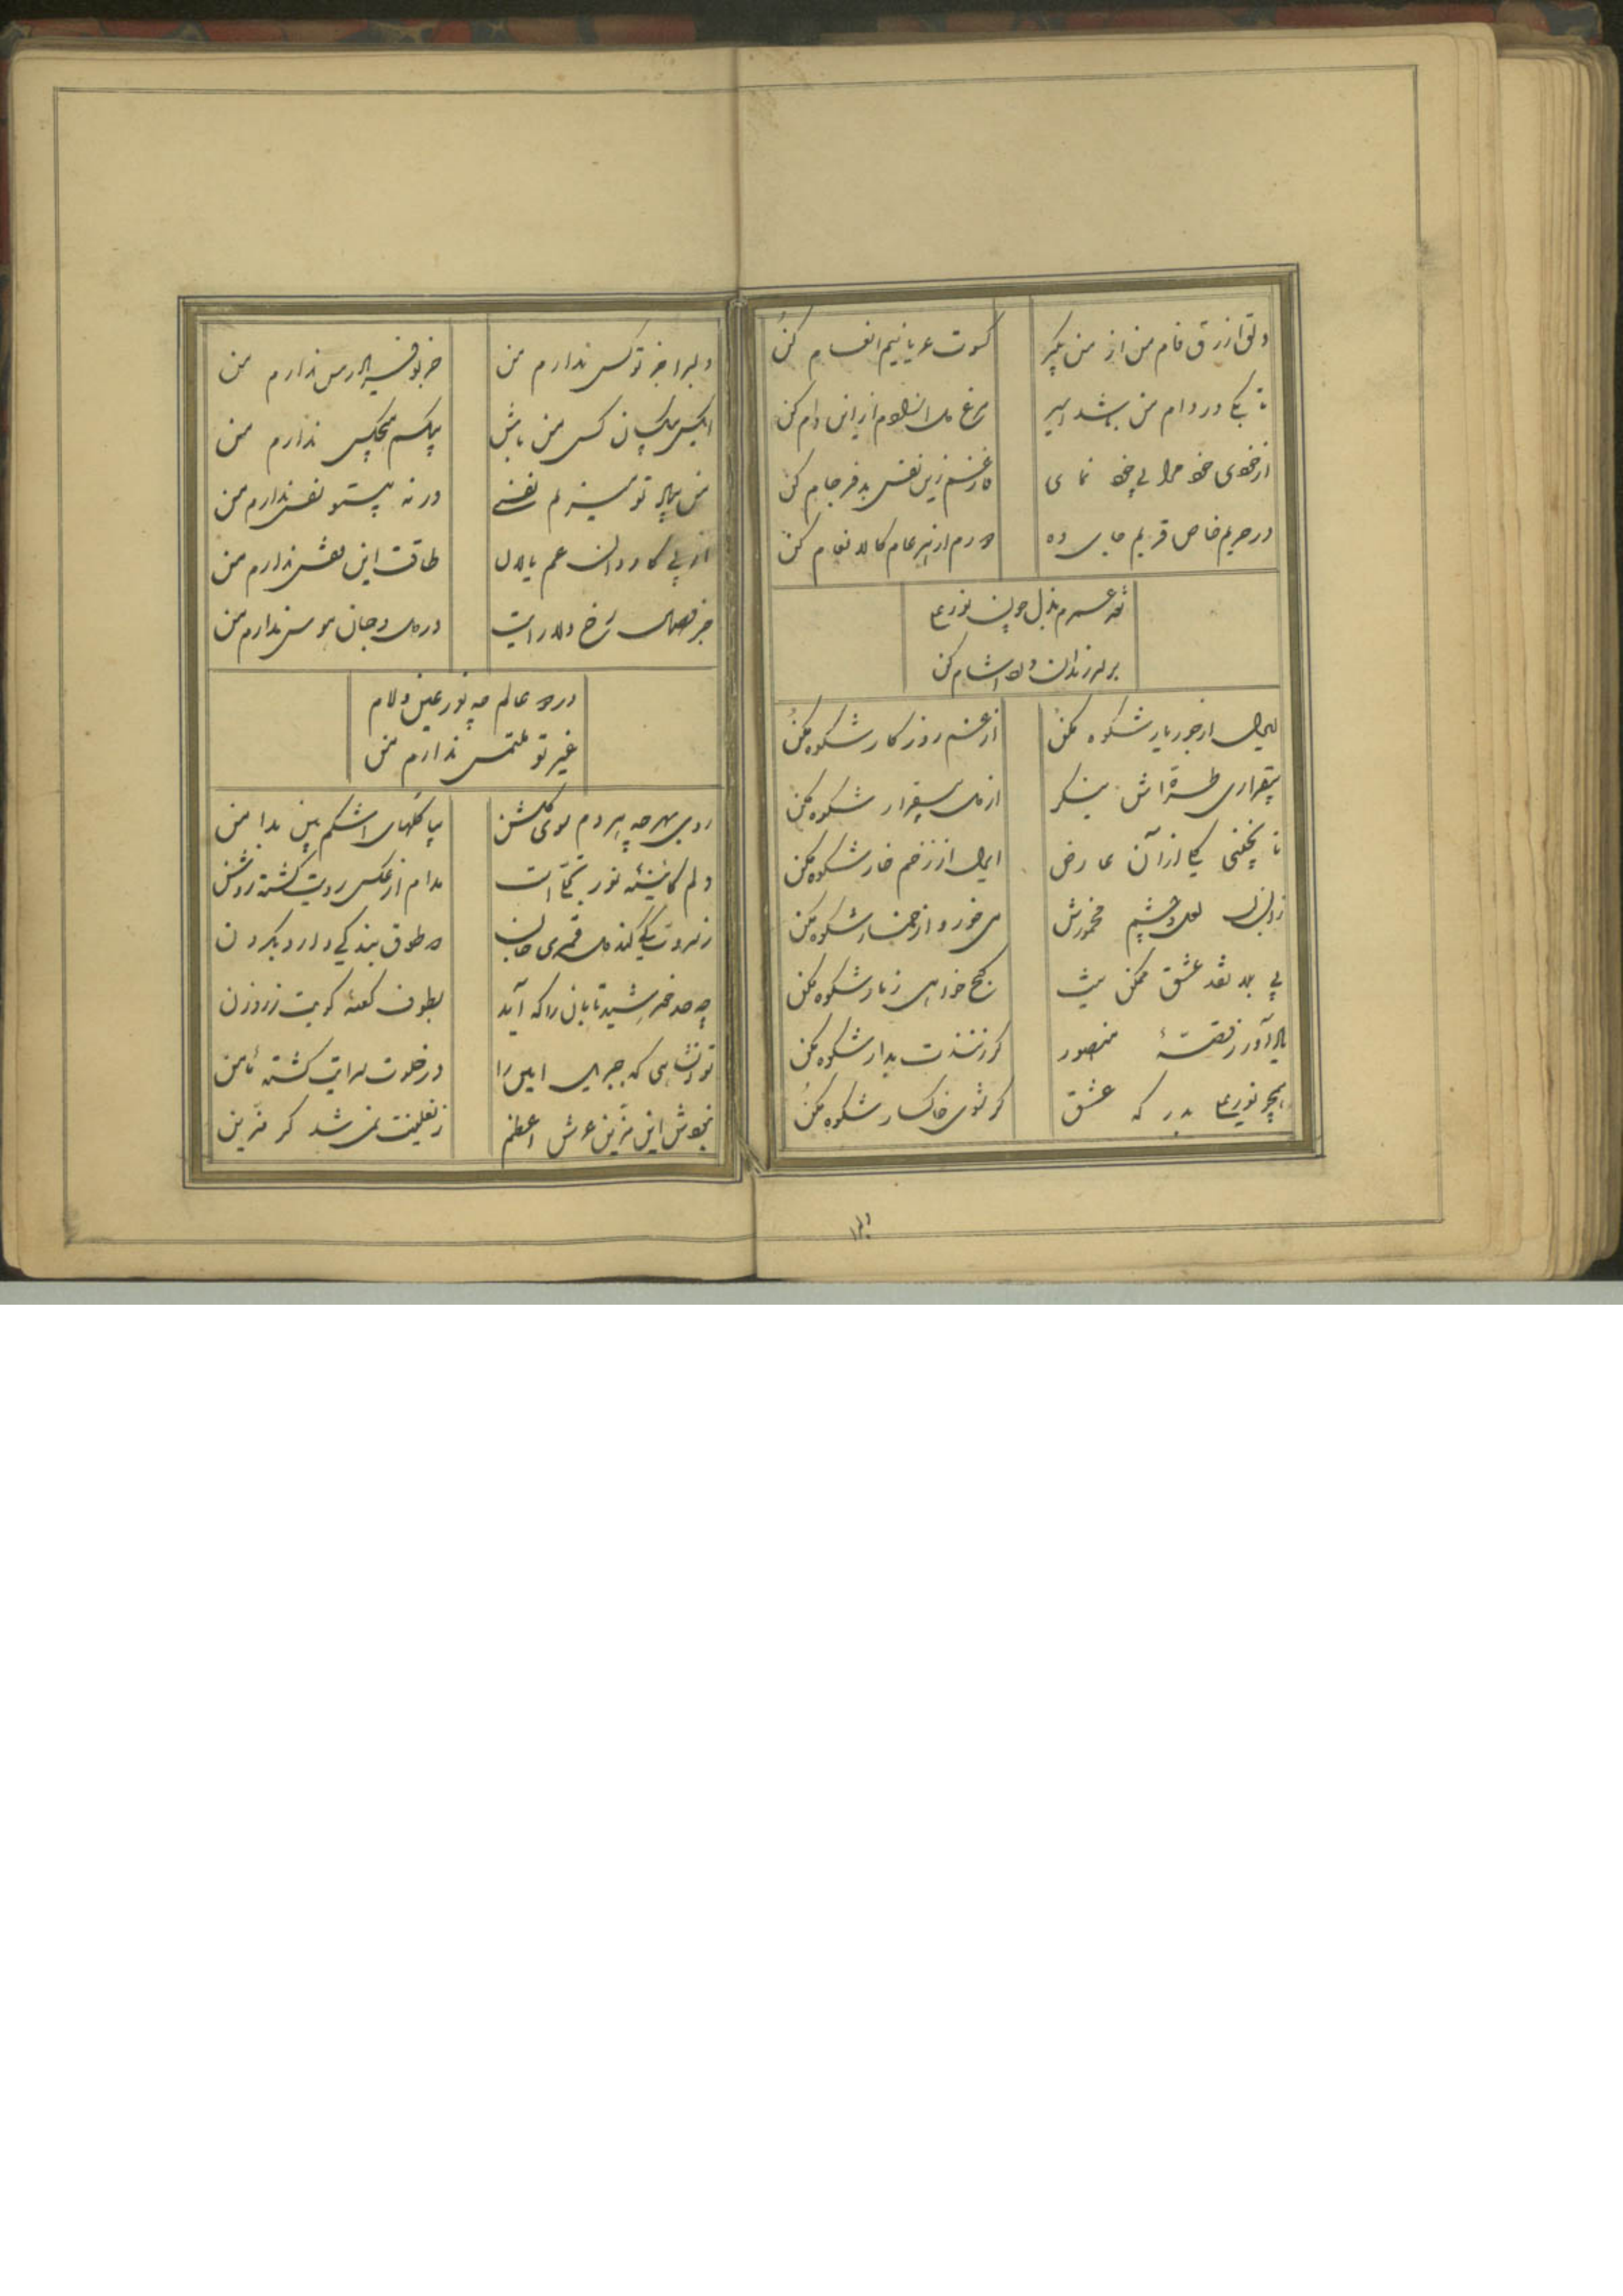 دلق ازرق فام من از من بگیر
کسوت عریانیم انعام کن
تا بکی در دام من باشد اسیر
مرغ دل از این دام کن
از خودی خود مرا بی خود نمای
فارغم زین نفس بدفرجام کن
در حریم خاص قربم جای ده
عام کالانعام کن
عمرم بذل چون نورعلی
بر در رندان درد آشام کن
ایدل از جور یار شکوه مکن
از غم روزگار شکوه مکن
بیقراری طره اش بنگر
از دل بیقرار شکوه مکن
تا نچینی گلی از آن عارض
ایدل از زخم خار شکوه مکن
لعل و چشم مخمورش
می خور و از خمار شکوه مکن
بی بلا نقد عشق ممکن نیست
گنج خواهی ز مار شکوه مکن
یاد آور ز قصهٔ منصور
گر زنندت بدار شکوه مکن
همچو نورعلی بدر که عشق
گر شوی خاکسار شکوه مکن
دلبرا جز تو کس ندارم من
جز تو فریادرس ندارم من
ایکس بیکسان کس من باش
بیکسم هیچکس ندارم من
من بیاد تو میزنم نفسی
ورنه بیتو نفس ندارم من
از پی کاروان غم نالان
طاقت این ندارم من
جز وصال رخ دلارایت
در دل و جان هوس ندارم من
در دو عالم چو نور عین ولام
غیر تو ملتمس ندارم من
روی بهر چه پیر دم سوی گلشن
بیا گلهای اشکم بین بدامن
دلم کائینهٔ نور تجلی است
مدام از عکس رویت گشته روشن
ز سروت کی کند دل قمری جان
که طوق بندگی دارد بگردن
چه حد خورشید تابان را که آید
بطوف کعبهٔ کویت ز روزن
تو آن شاهی که جبریل امین را
در خلوت سرایت گشته مامن
نبودش این مزین عرش اعظم
ز نعلینت نمی شد گر مزین